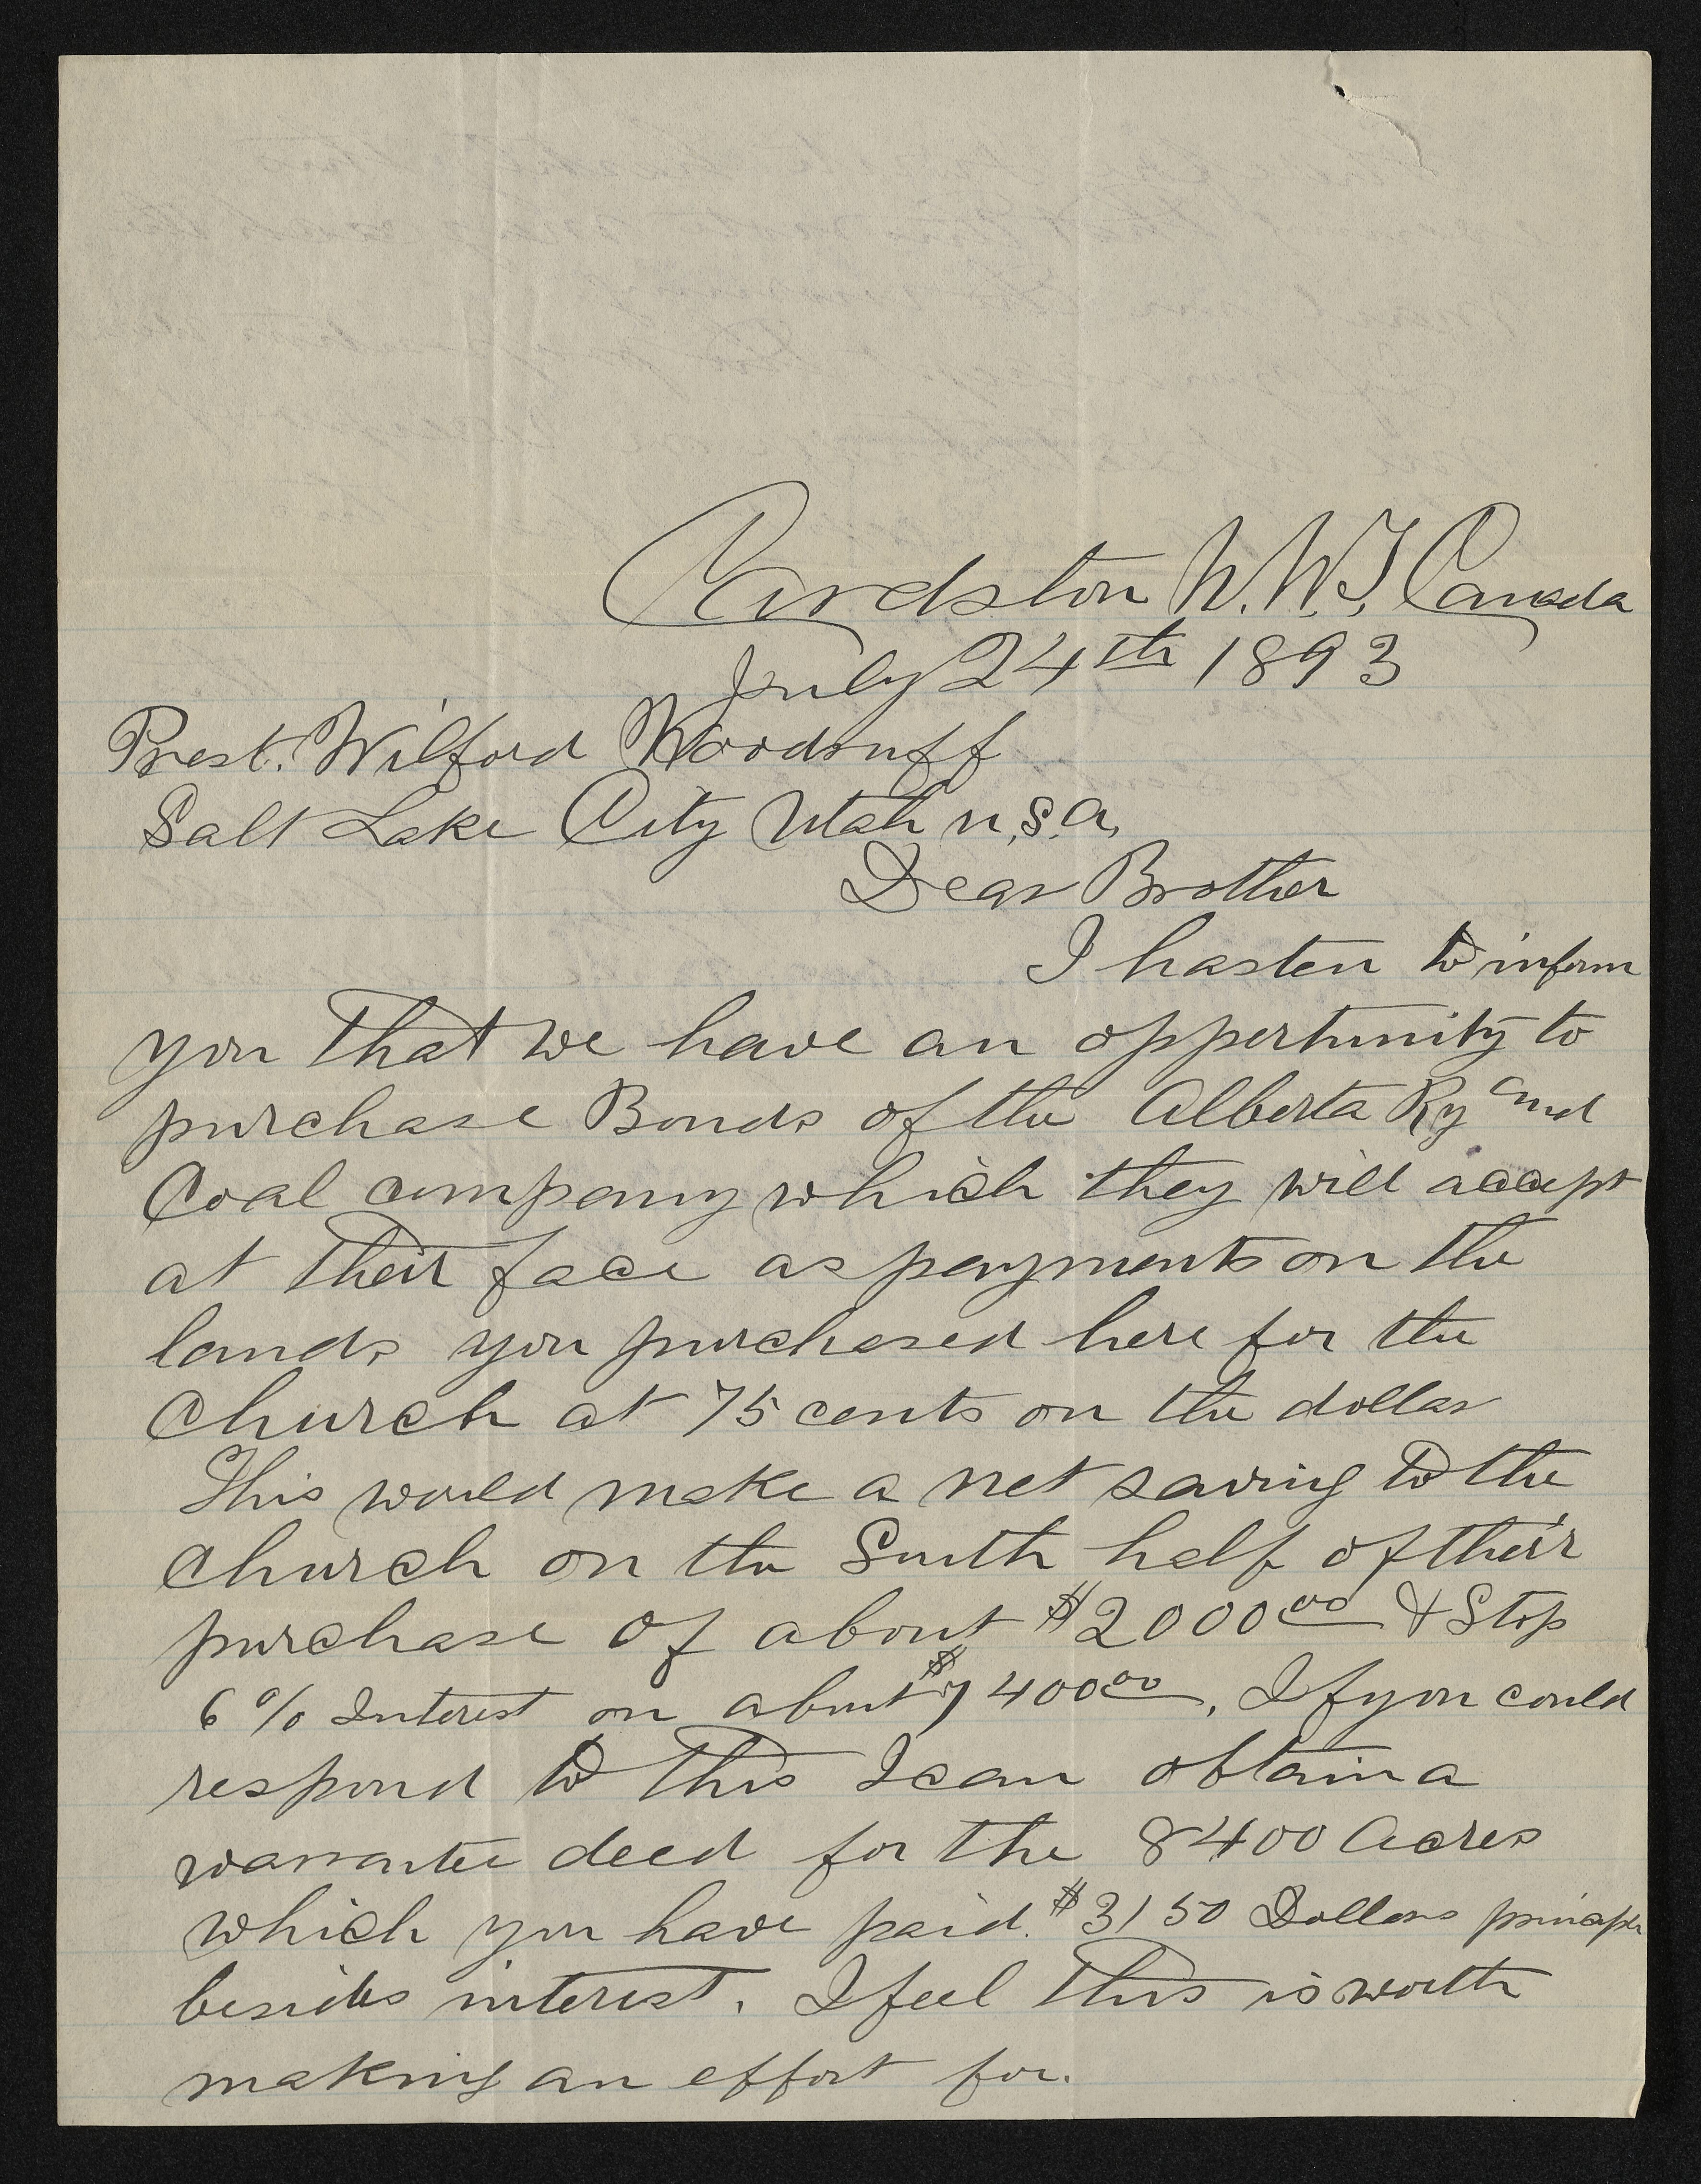 Cardston N.W.T, Canada
July 24th 1893
Prest. Wilford Woodruff
Salt Lake City Utah U.S.A,
Dear Brother
I hasten to inform
you that we have an oppertunity to
purchase Bonds of the Alberta Ry and
Coal company which they will accept
at their face as payments on the
lands you purchased here for the
Church at 75 cents on the dollar
This would make a net saving to the
church on the South half of their
purchase of about $2000.00 & Stop
6% Interest on about $7400.00, If you could
respond to this I can obtain a
warrantee deed for the 8400 Acres
which you have paid. $3150 Dollars principle
besides interest. I feel this is worth
making an effort for.